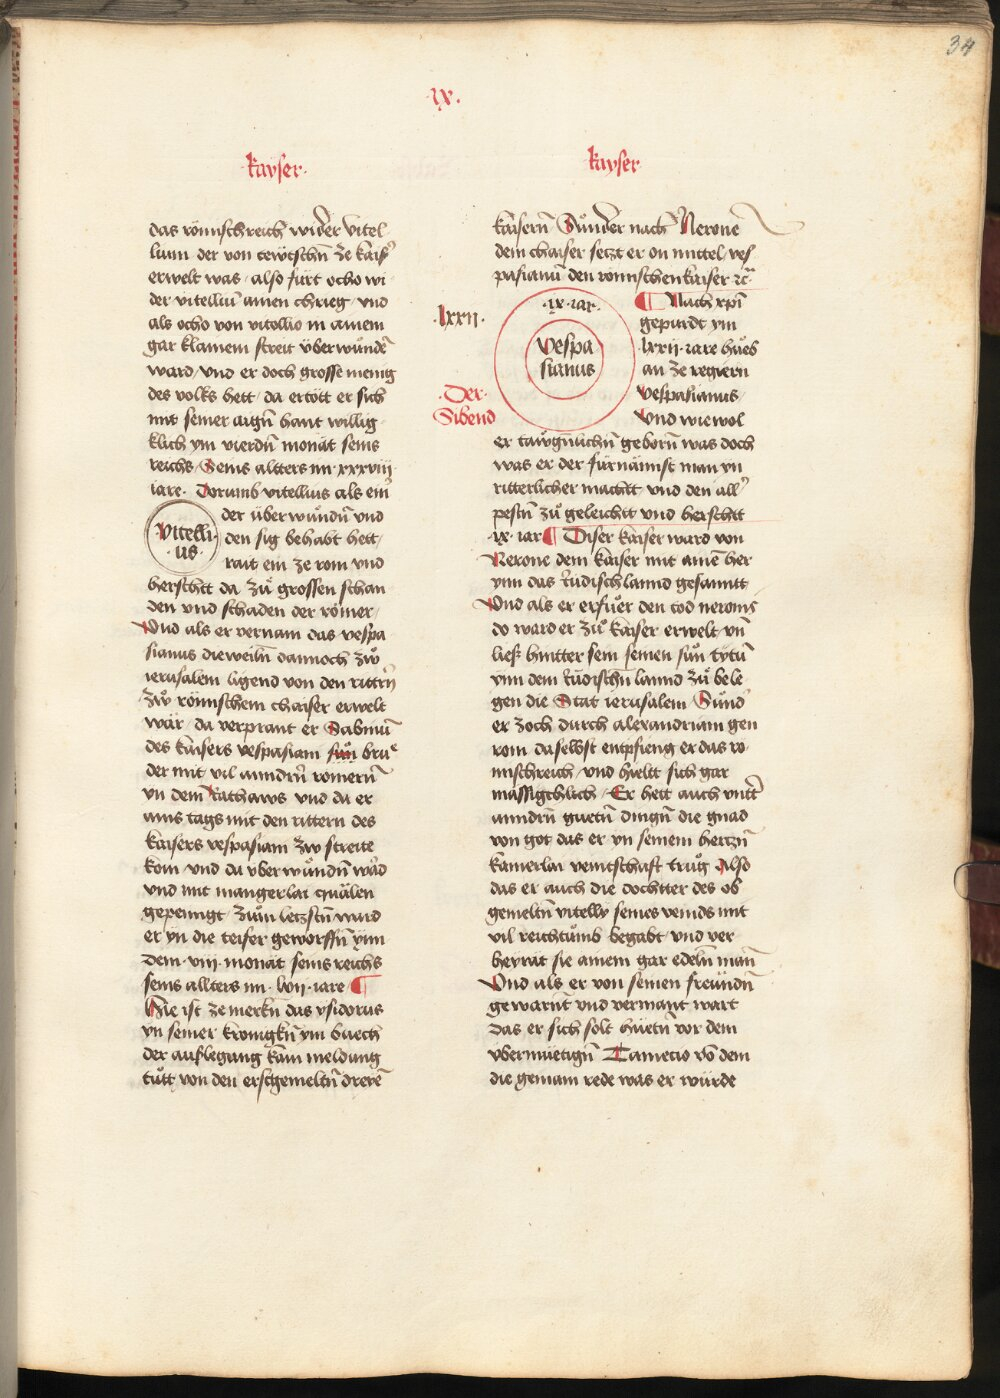 34
.ix.
kayser.
das römischreich wider Vitel
lium der von tewtschn ze kaisr
erwelt was / also fürt ocho wi
der vitelliū ainen chrieg / vnd
als ocho von vitellio in ainem
gar klainem streit vberwundē
ward / vnd er doch grosse menig
des volks hett / da ertött er sich
mit seiner aigñ hant willig
klich ym vierdñ monat seins
reichs / Seins altters im xxxviii
iare. Dorumb vitellius als ein
der überwundñ vnd
den sig behabt hett /
Vitelli
us
rait ein ze rom vnd
herschtt da zů grossen schan
den vnd schaden der römer /
Vnd als er vernam das vespa
sianus dieweiln dannoch zw
ierusalem ligend von den rittrñ
zw römischem chaiser erwelt
wär / da verprant er Sabinū
des kaisers vespasiani sun brue
der mit vil anndrñ römernn
yn dem Rathaws vnd da er
ains tags mit den rittern des
kaisers vespasiani zw streite
kom vnd da vberwundñ ward
vnd mit mangerlai quälen
gepeinigt / zum letzstn ward
er yn die teifer geworffñ ynn
dem viii monat seins reichs
seins allters im lvii iare ¶
Hie ist ze merkñ das ysidorus
yn seiner kronigkñ ym buech
der auslegung kain meldung
tutt von den erstgemeltñ dreyē
kayser
kaisern Sunder nach Nerone
dem chaiser setzt er on mittel ves
pasianū den römischen kaiser ꝛc
.lxxii.
.ix. iar.
Vespa
sianus
.Der.
Sibend
¶ Nach xpī
gepurdt ym
lxxii iare hueb
an ze regiern
Vespasianus /
Vnd wiewol
er tawgnlichñ geborñ was doch
was er der fürnämst man yn
ritterlicher machtt vnd den all
pestñ zů geleichtt vnd herschtt
ix iar ¶ Diser kaiser ward von
Nerone dem kaiser mit ainē her
ynn das Judischlannd gesanntt
Vnd als er erfuer den tod neronis
do ward er zů kaiser erwelt vñ
liess hintter sein seinen sun tytū
ynn dem Judischn lannd zů bele
gen die Stat ierusalem Sund
er zoch durch alexandriam gen
rom daselbst entpfieng er das rö
mischreich / vnd hieltt sich gar
mässigchlich / Er hett auch vntt
anndrñ guetñ dingñ die gnad
von got das er yn seinem hertzñ
kainerlai veintschaft trug Also
das er auch die dochtter des ob
gemeltñ vitelly seines veinds mit
vil reichtumb begabt / vnd ver
heyrat sie ainem gar edeln man
Vnd als er von seinen freundñ
gewarnt vnd vermant wart
das er sich solt huetñ vor dem
vbermüetigñ Tamecio võ dem
die gemain rede was er würde